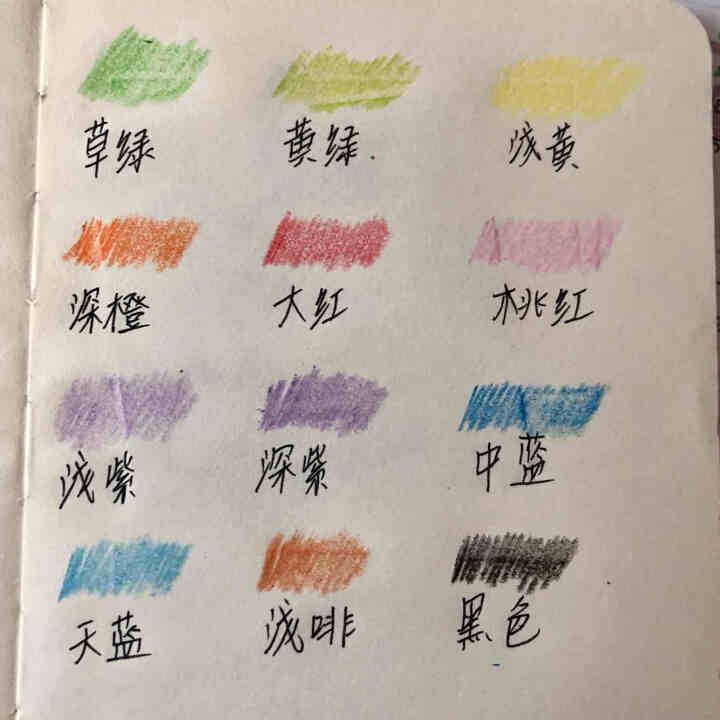 草绿 黄绿 浅黄
深橙 大红 桃红
浅紫 深紫 中蓝
天蓝 浅啡 黑色